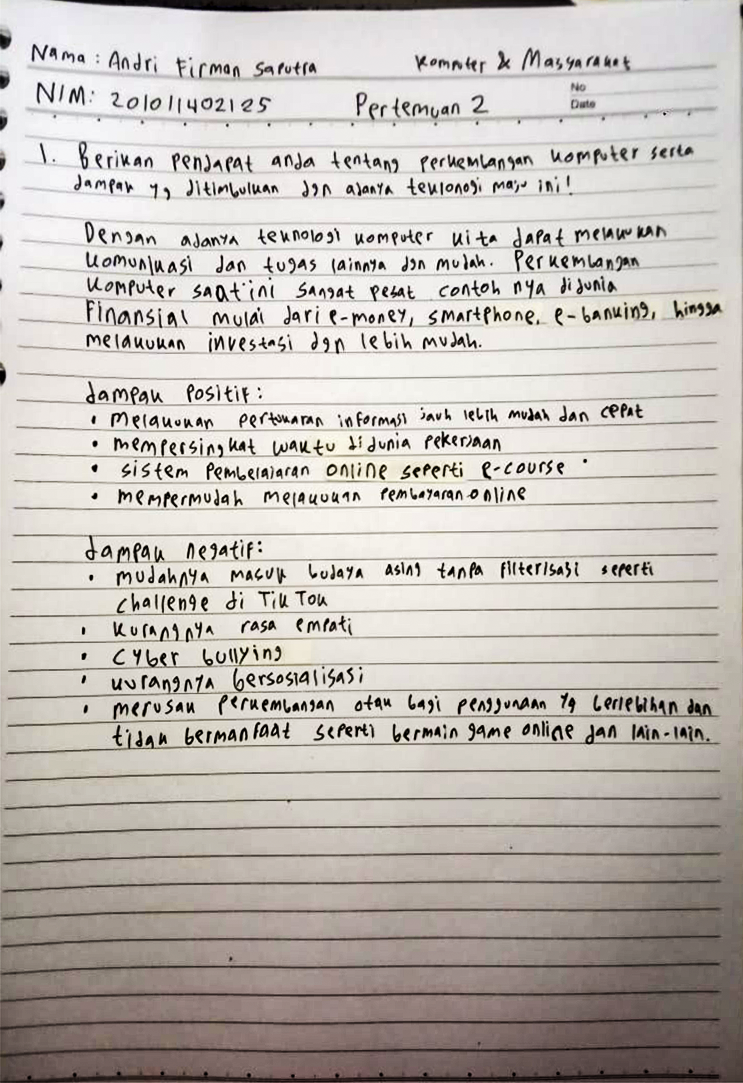 Nama : Andri Firman Saputra Komputer & Masyarakat
NIM: 201011402125 Pertemuan 2
No
Date
1. Berikan pendapat anda tentang perkembangan komputer serta
dampak yg ditimbulkan dgn adanya teklonogi maju ini!
Dengan adanya teknologi komputer kita dapat melakukan
komunikasi dan tugas lainnya dgn mudah. Perkembangan
komputer saat ini sangat pesat contoh nya didunia
Finansial mulai dari e-money, smartphone, e-banking, hingga
melakukan investasi dgn lebih mudah.
dampak positif :
• Melakukan pertukaran informasi jauh lebih mudah dan cepat
• mempersingkat waktu didunia pekerjaan
• sistem pembelajaran online seperti e-course
• mempermudah melakukan pembayaran online
dampak negatif:
• mudahnya masuk budaya asing tanpa filterisasi seperti
challenge di Tik Tok
• kurangnya rasa empati
• Cyber bullying
• kurangnya bersosialisasi
• merusak perkembangan otak bagi penggunaan yg berlebihan dan
tidak bermanfaat seperti bermain game online dan lain-lain.